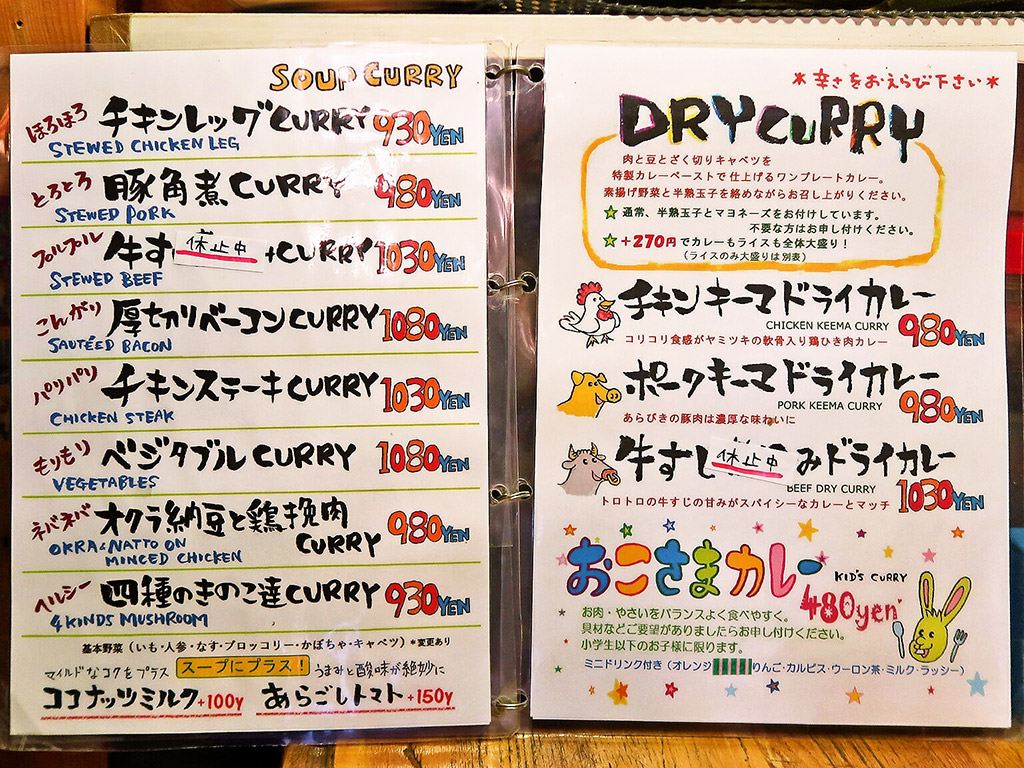 SOUP CURRY
ほろほろ チキンレッグCURRY 930YEN
STEWED CHICKEN LEG
とろとろ 豚角煮CURRY 980YEN
STEWED PORK
プルプル 牛す 休止中 CURRY 1030YEN
STEWED BEEF
こんがり 厚切りベーコンCURRY 1080YEN
SAUTÉED BACON
パリパリ チキンステーキCURRY 1030YEN
CHICKEN STEAK
もりもり ベジタブルCURRY 1080YEN
VEGETABLES
ネバネバ オクラ納豆と鶏挽肉
CURRY 980YEN
OKRA & NATTO ON
MINCED CHICKEN
ヘルシー 四種のきのこ達CURRY 930YEN
4 KINDS MUSHROOM
基本野菜(いも・人参・なす・ブロッコリー・かぼちゃ・キャベツ)*変更あり
マイルドなコクをプラス スープにプラス! うまみと酸味が絶妙に
ココナッツミルク+100y あらごしトマト+150y
*辛さをおえらび下さい*
DRY CURRY
肉と豆とざく切りキャベツを
特製カレーペーストで仕上げるワンプレートカレー。
素揚げ野菜と半熟玉子を絡めながらお召し上がりください。
☆通常、半熟玉子とマヨネーズをお付けしています。
不要な方はお申し付けください。
☆+270円でカレーもライスも全体大盛り!
(ライスのみ大盛りは別表)
チキンキーマドライカレー
CHICKEN KEEMA CURRY 980YEN
コリコリ食感がヤミツキの軟骨入り鶏ひき肉カレー
ポークキーマドライカレー
PORK KEEMA CURRY 980YEN
あらびきの豚肉は濃厚な味わいに
牛すじ 休止中 みドライカレー
BEEF DRY CURRY 1030YEN
トロトロの牛すじの甘みがスパイシーなカレーとマッチ
おこさまカレー KID'S CURRY
480yen
お肉・やさいをバランスよく食べやすく。
具材などご要望がありましたらお申し付けください。
小学生以下のお子様に限ります。
ミニドリンク付き(オレンジ りんご・カルピス・ウーロン茶・ミルク・ラッシー)